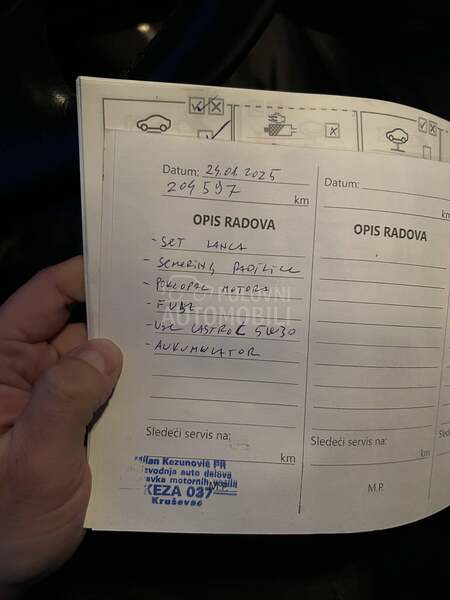 Datum: 24.01.2025
204 597 km
OPIS RADOVA
- SET LANCA
- SEMERING RADILICE
- POKLOPAC MOTORA
- ULJE CASTROL 5W30
- AKUMULATOR
Sledeći servis na:
km
Milan Kezunović PR
vodnja auto delova
avka motornih vozila
KEZA 037
Kruševac
Datum:
km
OPIS RADOVA
Sledeći servis na:
M.P.
POLOVNI
AUTOMOBILI